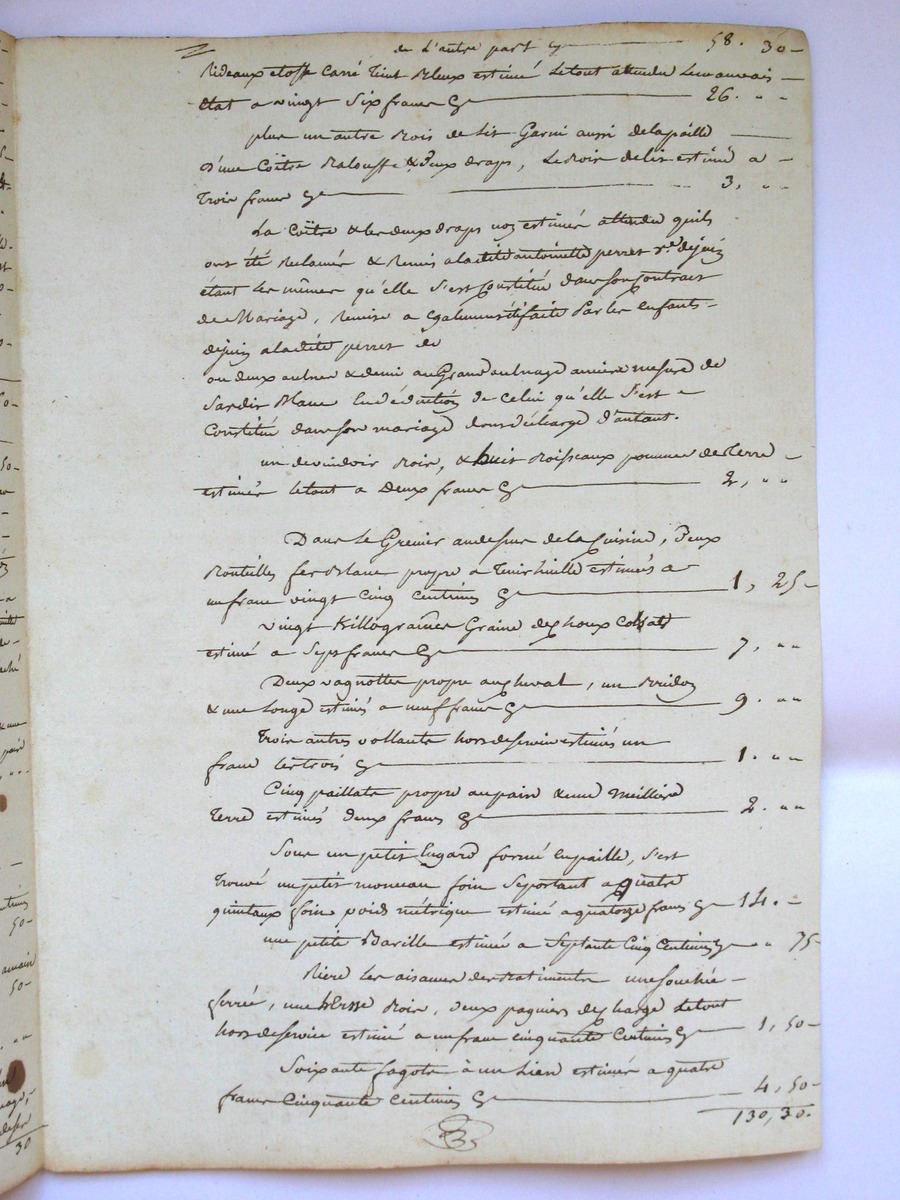 de L'autre part Cy 58. 30
Rideaux etoffe Carré Teint Bleux estimé Le tout attendu Le mauvais
état a vingt Six francs Cy 26. " "
plus un autre Bois de lit Garni aussi de la paille
D'une Coitre Balouffe & Deux draps, Le Bois de lit estimé a
Trois francs Cy 3, " "
La Coitre & les deux draps non estimés attendu quils
ont été Reclamés & Remis a la dite antoinette perret
étant les mêmes qu'elle S'est Constitué dans son Contrat
de Mariage, Remise a Egalement été faite Par les enfants
a la dite perret de
ou deux aulnes & demi au Grand aulnage anciene mesure de
Sardis Blanc En déduction de Celui qu'elle S'est
Constitué dans son mariage dont décharge d'autant.
un devindoir Bois, & huit Boisseaux pommes de Terre
estimés le tout a Deux francs Cy 2, " "
Dans Le Grenier au dessus de la Cuisine, Deux
Bouteilles fer Blanc propre a Tenir huille estimés a
un franc vingt Cinq Centimes Cy 1, 25
vingt Killogrames Graine de Choux Colsat
estimé a Sept francs Cy 7, " "
Deux vagnottes propre au Cheval, un Bridon
& une Longe estimés a neuf francs Cy 9. " "
Trois autres vollants hors de service estimés un
franc les trois Cy 1. " "
Cinq paillats propre au pain & une
Terre estimés deux francs Cy 2. " "
Sous un petit Engard formé en paille, S'est
Trouvé un petit monceau foin Se portant a Quatre
quintaux foin poids métrique estimé a quatorze francs Cy 14. "
une petite Barille estimée a Septante Cinq Centimes Cy " 75
Riere les aisances des Batiments une
ferrée, une hErsse Bois, deux paquiers de Charge Le tout
hors de service estimé a un franc cinquante Centimes Cy 1, 50
Soixante fagots à un Lien estimés a quatre
francs Cinquante Centimes Cy 4, 50
130, 30.